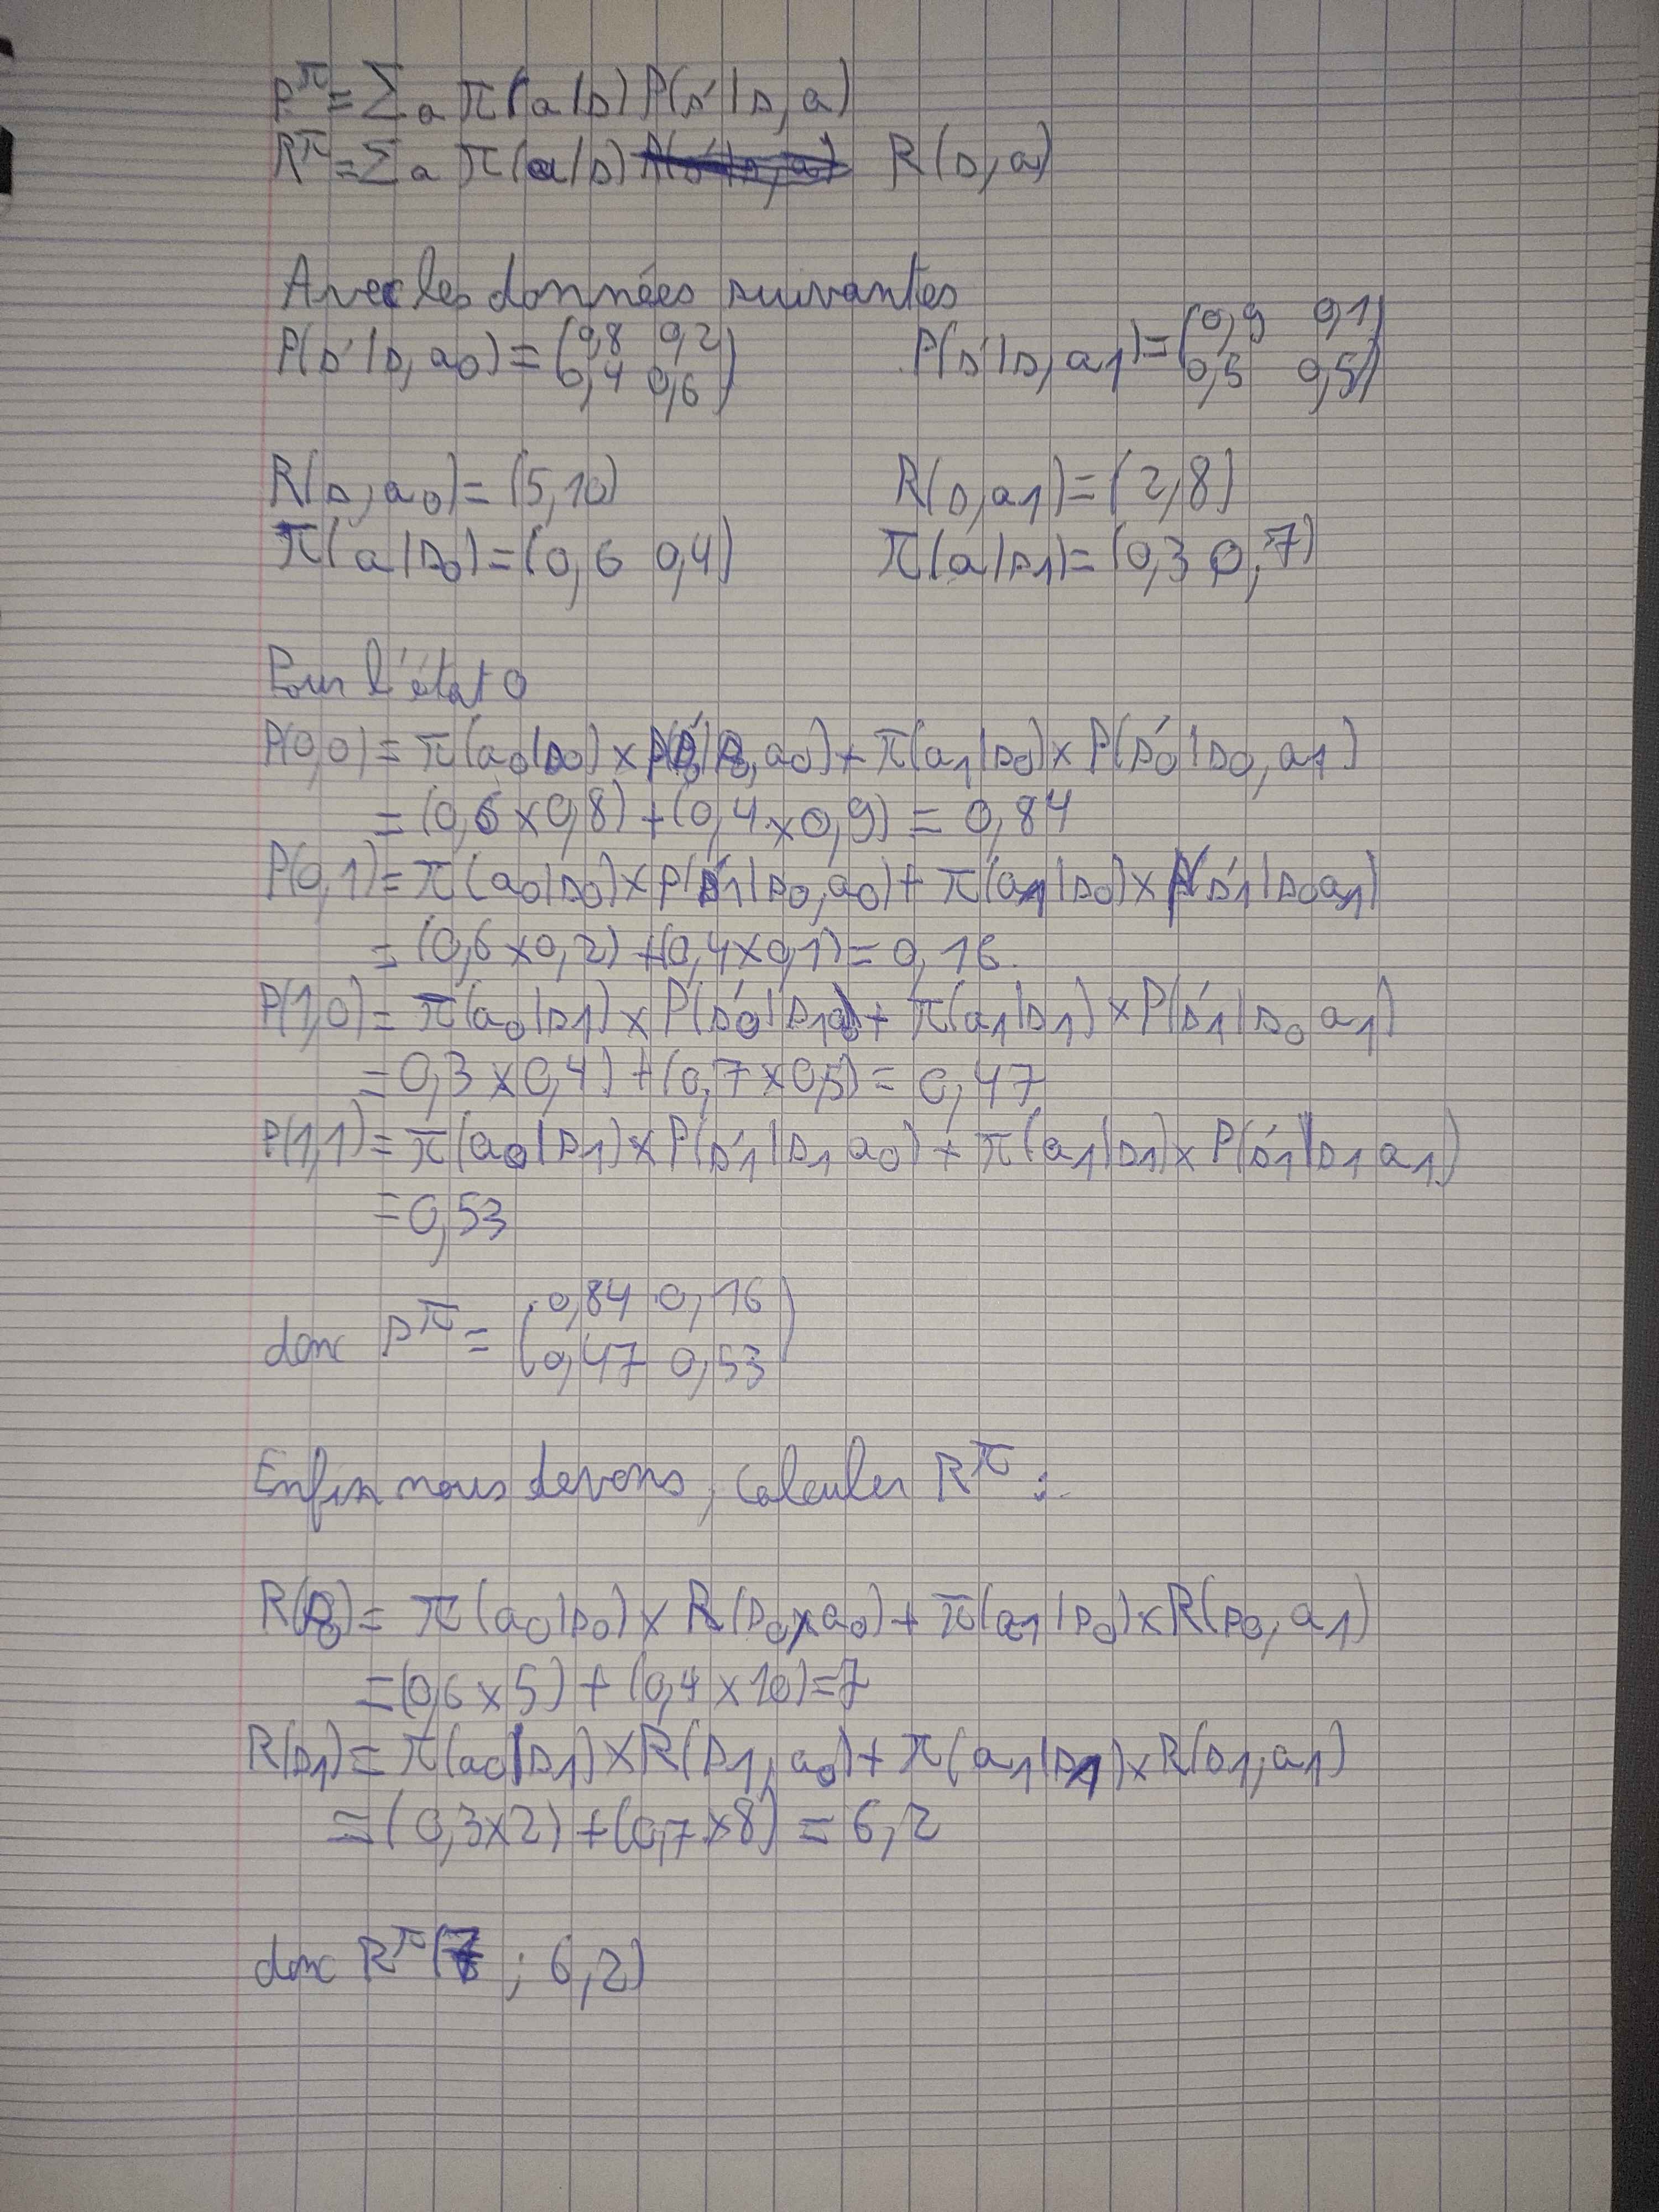 P^π = Σa π(a|s) P(s'|s, a)
R^π = Σa π(a|s) R(s, a)
Avec les données suivantes
P(s'|s, a0) = (0,8 0,2     P(s'|s, a1) = (0,9 0,1
0,4 0,6)     0,5 0,5)
R(s, a0) = (5, 10)     R(s, a1) = (2, 8)
π(a|s0) = (0,6 0,4)     π(a|s1) = (0,3 0,7)
Pour l'état 0
P(0,0) = π(a0|s0) × P(s'0|s0, a0) + π(a1|s0) × P(s'0|s0, a1)
= (0,6 × 0,8) + (0,4 × 0,9) = 0,84
P(0,1) = π(a0|s0) × P(s'1|s0, a0) + π(a1|s0) × P(s'1|s0 a1)
= (0,6 × 0,2) + (0,4 × 0,1) = 0,16
P(1,0) = π(a0|s1) × P(s'0|s1 a0) + π(a1|s1) × P(s'1|s0 a1)
= 0,3 × 0,4) + (0,7 × 0,5) = 0,47
P(1,1) = π(a0|s1) × P(s'1|s1 a0) + π(a1|s1) × P(s'1|s1 a1)
= 0,53
donc P^π = (0,84 0,16
0,47 0,53)
Enfin nous devons, calculer R^π :
R(s0) = π(a0|s0) × R(s0, a0) + π(a1|s0) × R(s0, a1)
= (0,6 × 5) + (0,4 × 10) = 7
R(s1) = π(a0|s1) × R(s1, a0) + π(a1|s1) × R(s1, a1)
= (0,3 × 2) + (0,7 × 8) = 6,2
donc R^π (7 ; 6,2)